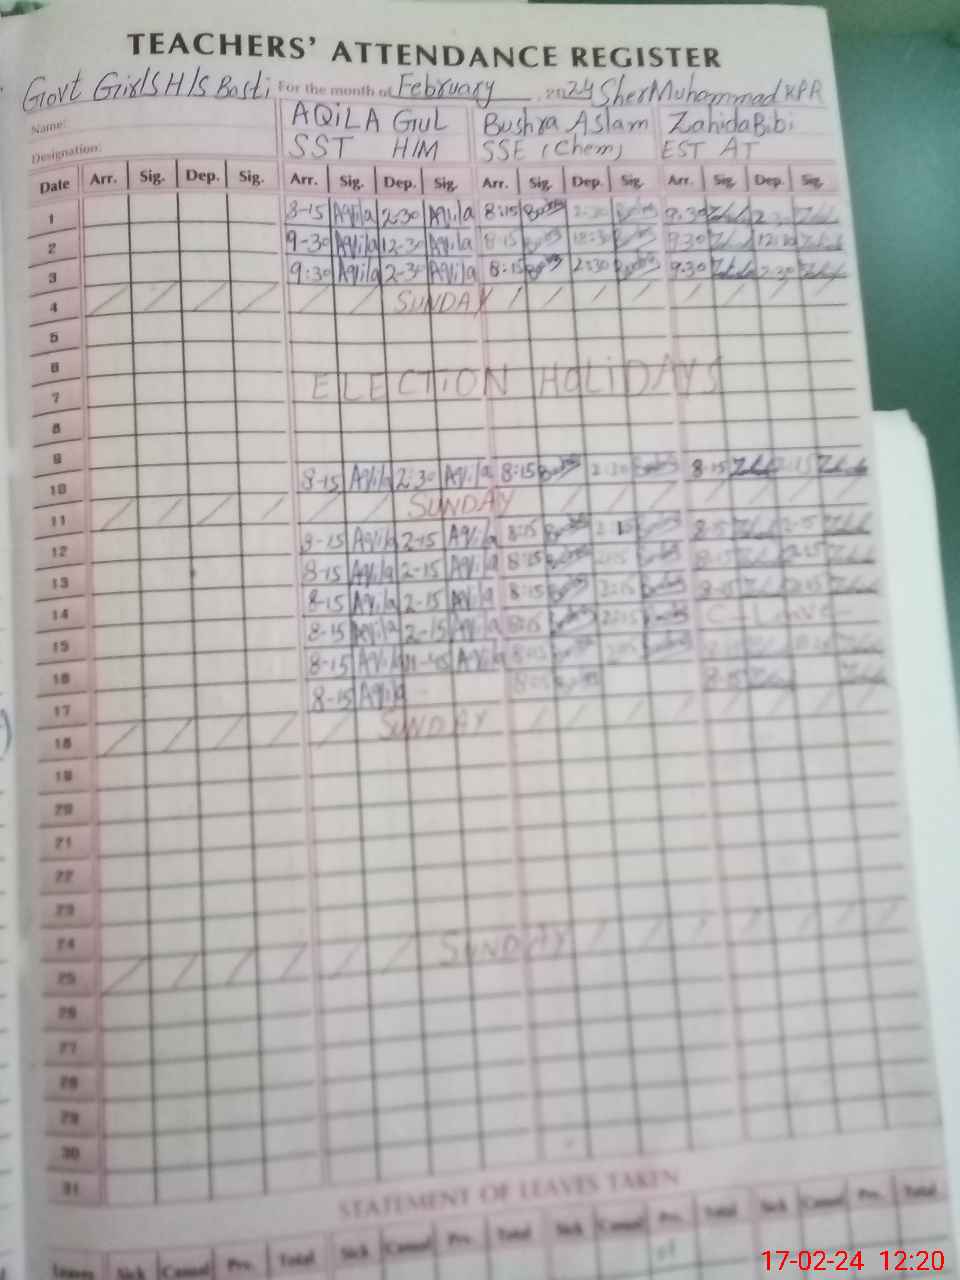 TEACHERS' ATTENDANCE REGISTER
Govt Girls H/S Basti For the month of February 2024 Sher Muhammad KPR
Name: AQiLA GUL Bushra Aslam Zahida Bibi
Designation: SST H/M SSE (Chem) EST AT
Date Arr. Sig. Dep. Sig. Arr. Sig. Dep. Sig. Arr. Sig. Dep. Sig. Arr. Sig. Dep. Sig.
1 8-15 Aqila 2:30 Aqila 8:15 2:30 9.30 2:30
2 9-30 Aqila 12-30 Aqila 8:15 12:30 9:30 12:30
3 9:30 Aqila 2-30 Aqila 8:15 2:30 9.30 2:30
4 SUNDAY
5
6
7 ELECTION HOLIDAYS
8
9
10 8-15 Aqila 2:30 Aqila 8:15 2:30 8-15 2:15
11 SUNDAY
12 8-15 Aqila 2-15 Aqila 8:15 2:15 8-15 2-15
13 8-15 Aqila 2-15 Aqila 8:15 2:15 8-15 2:15
14 8-15 Aqila 2-15 Aqila 8:15 2:15 8-15 2:15
15 8-15 Aqila 2-15 Aqila 8:15 2:15 C-Leave-
16 8-15 Aqila 11-45 Aqila 8:15
17 8-15 Aqila 8:15 8-15
18 SUNDAY
19
20
21
22
23
24
25 SUNDAY
26
27
28
29
30
31
STATEMENT OF LEAVES TAKEN
Leaves Sick Casual Prv. Total Sick Casual Prv. Total Sick Casual Prv. Total Sick Casual Prv. Total
17-02-24 12:20